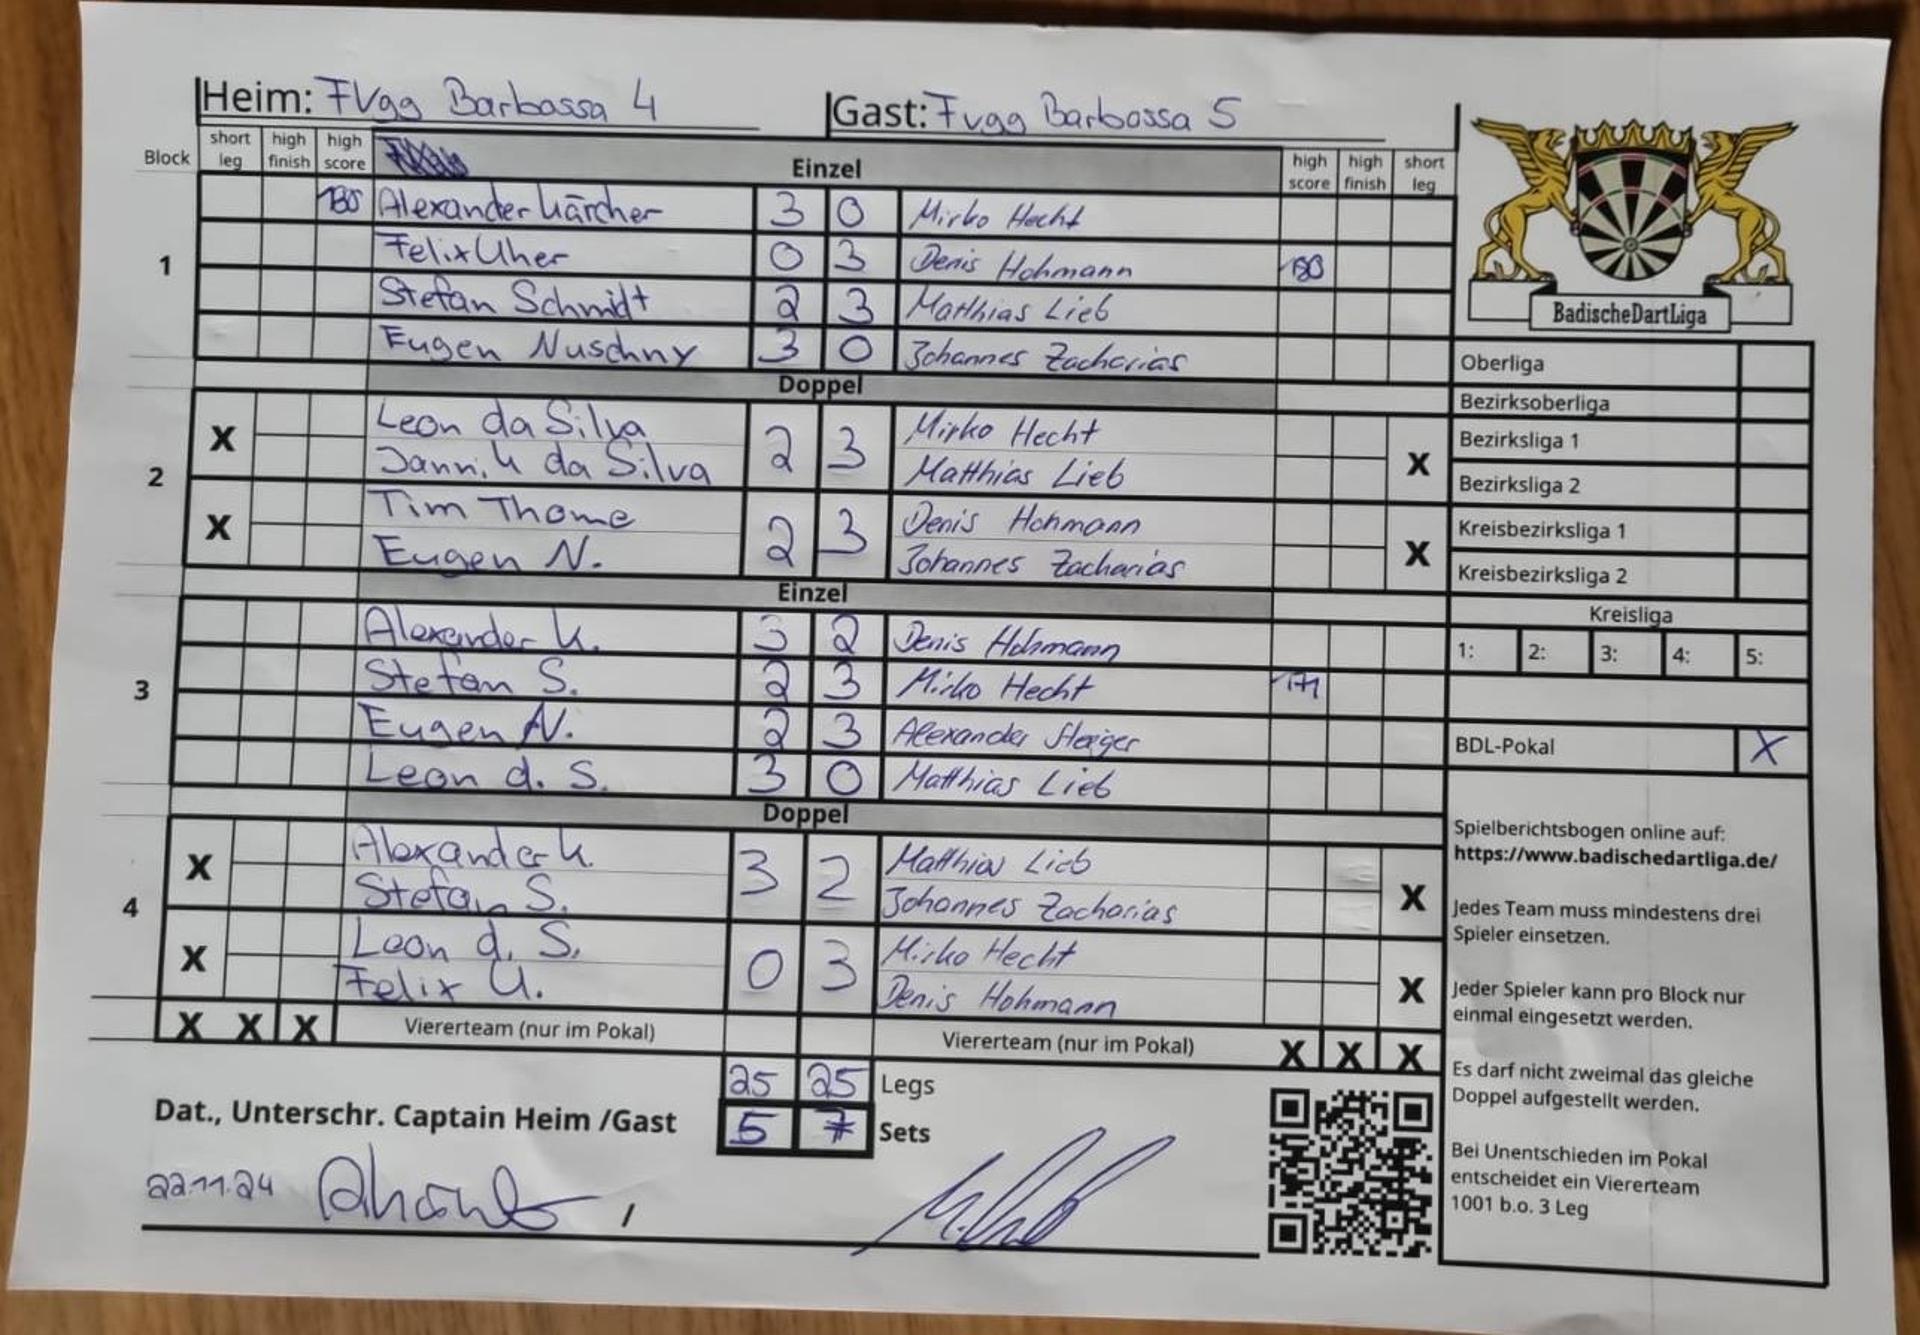 Heim: FVgg Barbossa 4 Gast: Fvgg Barbossa 5
Block short leg high finish high score Einzel high score high finish short leg
1
180 Alexander Kärcher 3 0 Mirko Hecht
Felix Uher 0 3 Denis Hohmann 180
Stefan Schmidt 2 3 Matthias Lieb
Eugen Nuschny 3 0 Johannes Zacharias
Doppel
2
X Leon da Silva 2 3 Mirko Hecht X
Jannik da Silva Matthias Lieb
X Tim Thome 2 3 Denis Hohmann X
Eugen N. Johannes Zacharias
Einzel
3
Alexander K. 3 2 Denis Hohmann
Stefan S. 2 3 Mirko Hecht 171
Eugen N. 2 3 Alexander
Leon d. S. 3 0 Matthias Lieb
Doppel
4
X Alexander K. 3 2 Matthias Lieb X
Stefan S. Johannes Zacharias
X Leon d. S. 0 3 Mirko Hecht X
Felix U. Denis Hohmann
X X X Viererteam (nur im Pokal) Viererteam (nur im Pokal) X X X
25 25 Legs
Dat., Unterschr. Captain Heim /Gast 5 7 Sets
22.11.24 /
BadischeDartLiga
Oberliga
Bezirksoberliga
Bezirksliga 1
Bezirksliga 2
Kreisbezirksliga 1
Kreisbezirksliga 2
Kreisliga
1: 2: 3: 4: 5:
BDL-Pokal X
Spielberichtsbogen online auf:
https://www.badischedartliga.de/
Jedes Team muss mindestens drei
Spieler einsetzen.
Jeder Spieler kann pro Block nur
einmal eingesetzt werden.
Es darf nicht zweimal das gleiche
Doppel aufgestellt werden.
Bei Unentschieden im Pokal
entscheidet ein Viererteam
1001 b.o. 3 Leg